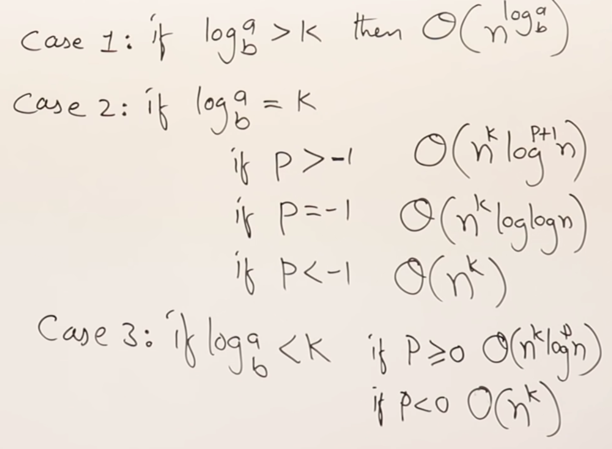 Case 1: if log_b^a > k then O(n^{log_b^a})
Case 2: if log_b^a = k
if P > -1 O(n^k log^{P+1} n)
if P = -1 O(n^k loglogn)
if P < -1 O(n^k)
Case 3: if log_b^a < k if P ≥ 0 O(n^k log^p n)
if P < 0 O(n^k)